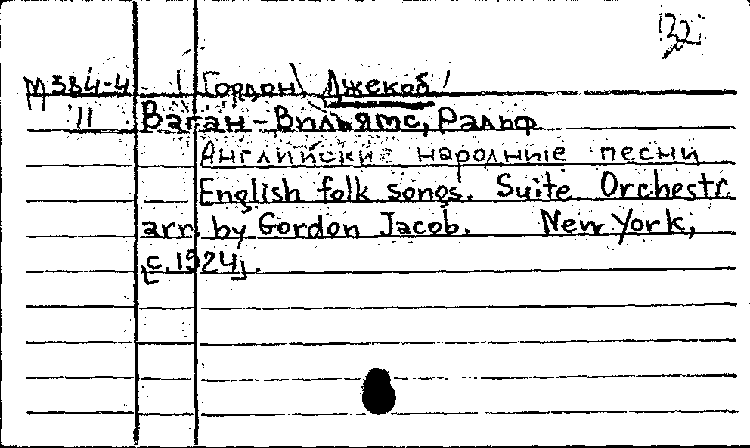 M384-4 (Гордон Джекоб)
11 Ваган-Вильямс, Ральф
Английские народные песни
English folk songs. Suite Orchestr.
arr. by Gordon Jacob. New York,
[c.1924].